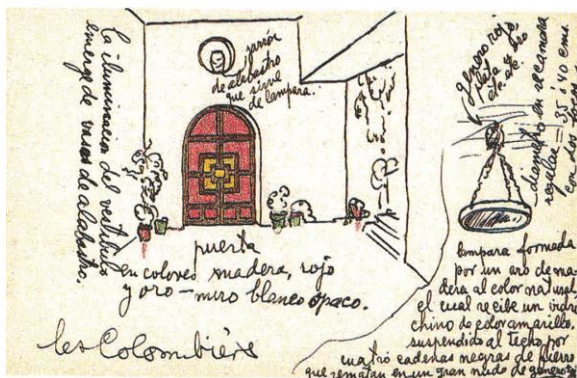 la iluminacion del vestibulo
emerge de vasos de alabastro.
jarrón
de alabastro
que sirve
de lampara.
puerta
en colores madera, rojo
y oro – muro blanco opaco.
les Colombièrs
genero rojo
plata y oro
etc. etc.
diametro en recamara
regular = 35 ' 40 cms
con dos
lampara formada
por un aro de ma
dera al color natural
el cual recibe un vidrio
chino de color amarillo,
suspendido al techo por
cuatro cadenas negras de fierro
que rematan en un gran nudo de genero